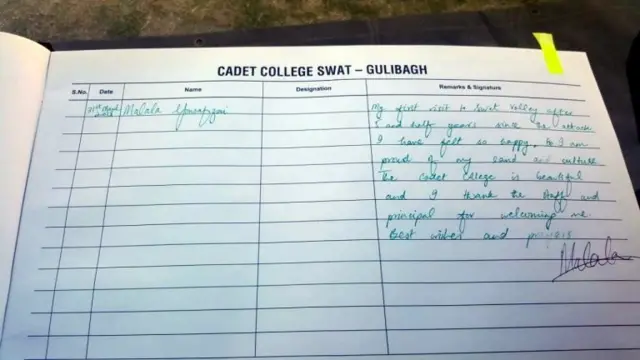 CADET COLLEGE SWAT – GULIBAGH
S.No. Date Name Designation Remarks & Signature
Malala Yousafzai
My first visit to Swat Valley after
5 and half years since the attack
I have felt so happy. So I am
proud of my land and culture
The cadet college is beautiful
and I thank the staff and
principal for welcoming me
Best wishes and prayers
Malala